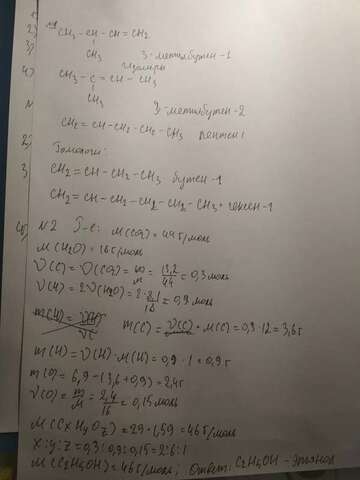 1
2)
3)
4)
N
2)
3
№1
CH₃-CH-CH=CH₂
CH₃ 3-метилбутен-1
изомеры
CH₃-C=CH-CH₃
CH₃
2-метилбутен-2
CH₂=CH-CH₂-CH₂-CH₃ пентен 1
Гомологи:
CH₂=CH-CH₂-CH₃ бутен-1
CH₂=CH-CH₂-CH₂-CH₂-CH₃ гексен-1
N2 M(CO₂)=44г/моль
M(H₂O)=18г/моль
ν(C)=ν(CO₂)=m/M=13,2/44=0,3моль
ν(H)=2ν(H₂O)=2·8,1/18=0,9моль
m(C)=ν(C)·M(C)=0,3·12=3,6г
m(H)=ν(H)·M(H)=0,9·1=0,9г
m(O)=6,9-(3,6+0,9)=2,4г
ν(O)=m/M=2,4/16=0,15моль
M(CxHyOz)=29·1,59=46г/моль
x:y:z=0,3:0,9:0,15=2:6:1
M(C₂H₅OH)=46г/моль; Ответ: C₂H₅OH-этанол